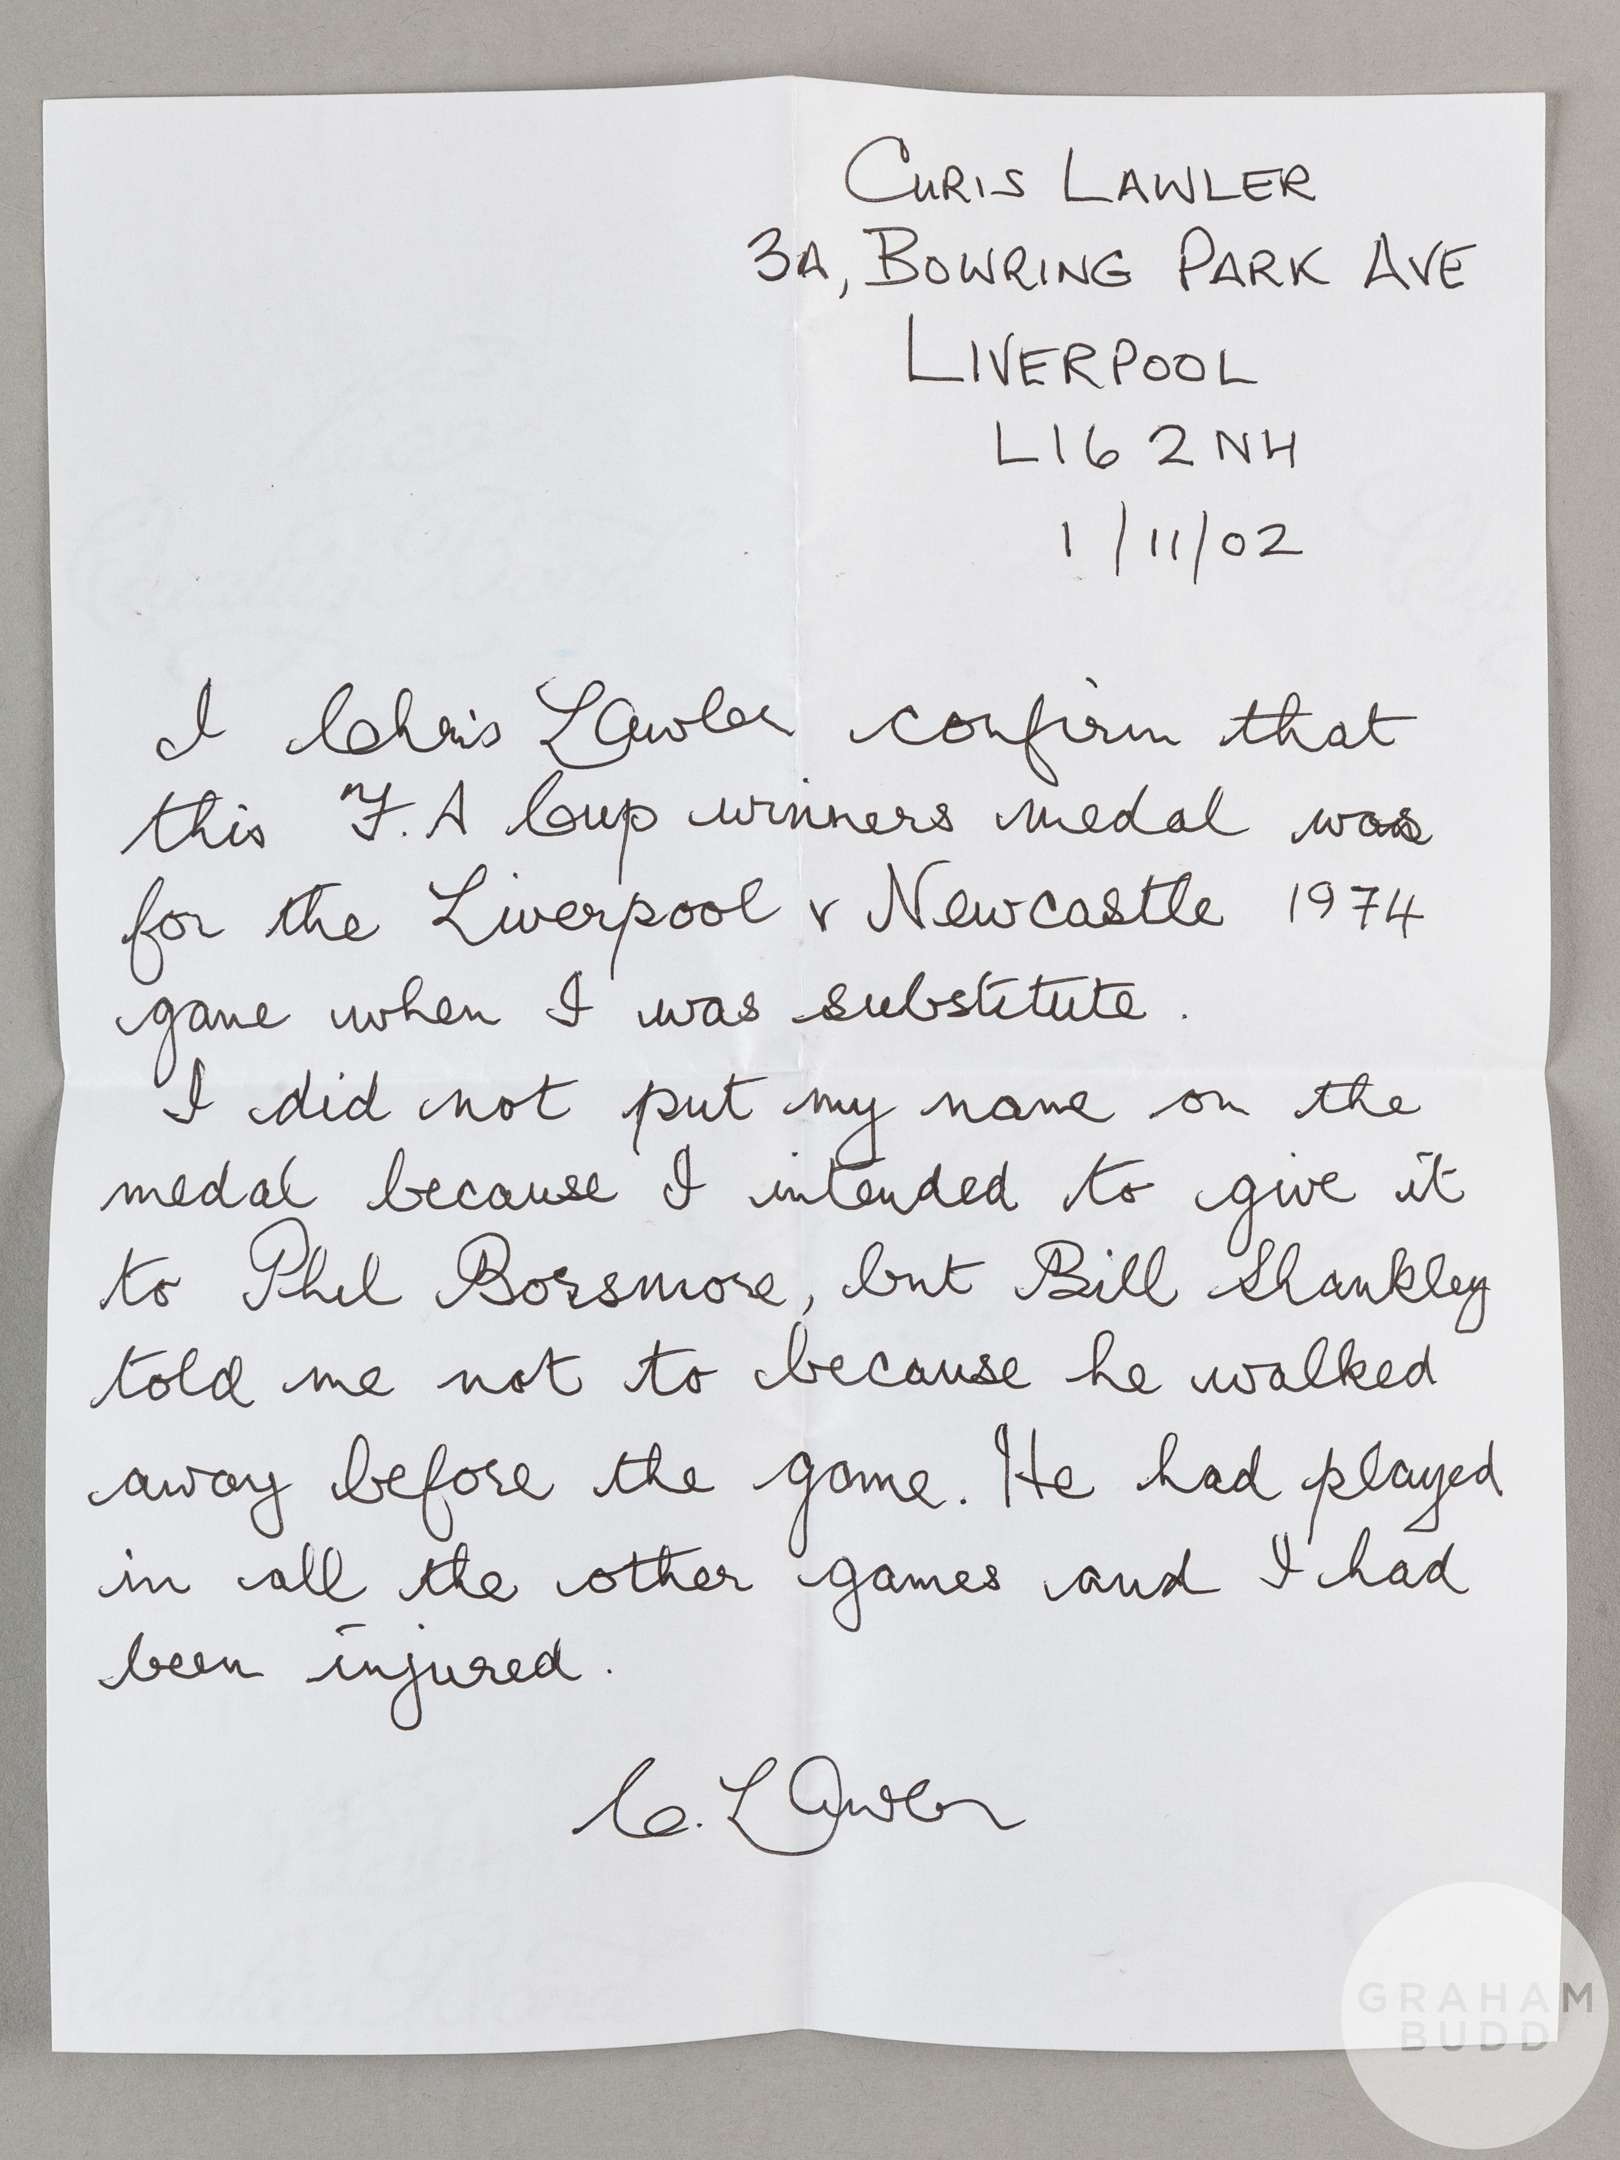 CHRIS LAWLER
3A, BOWRING PARK AVE
LIVERPOOL
L16 2NH
1/11/02
I Chris Lawler confirm that
this F.A Cup winners medal was
for the Liverpool v Newcastle 1974
game when I was substitute.
I did not put my name on the
medal because I intended to give it
to Phil Borsmore, but Bill Shankley
told me not to because he walked
away before the game. He had played
in all the other games and I had
been injured.
C. Lawler
GRAHAM
BUDD